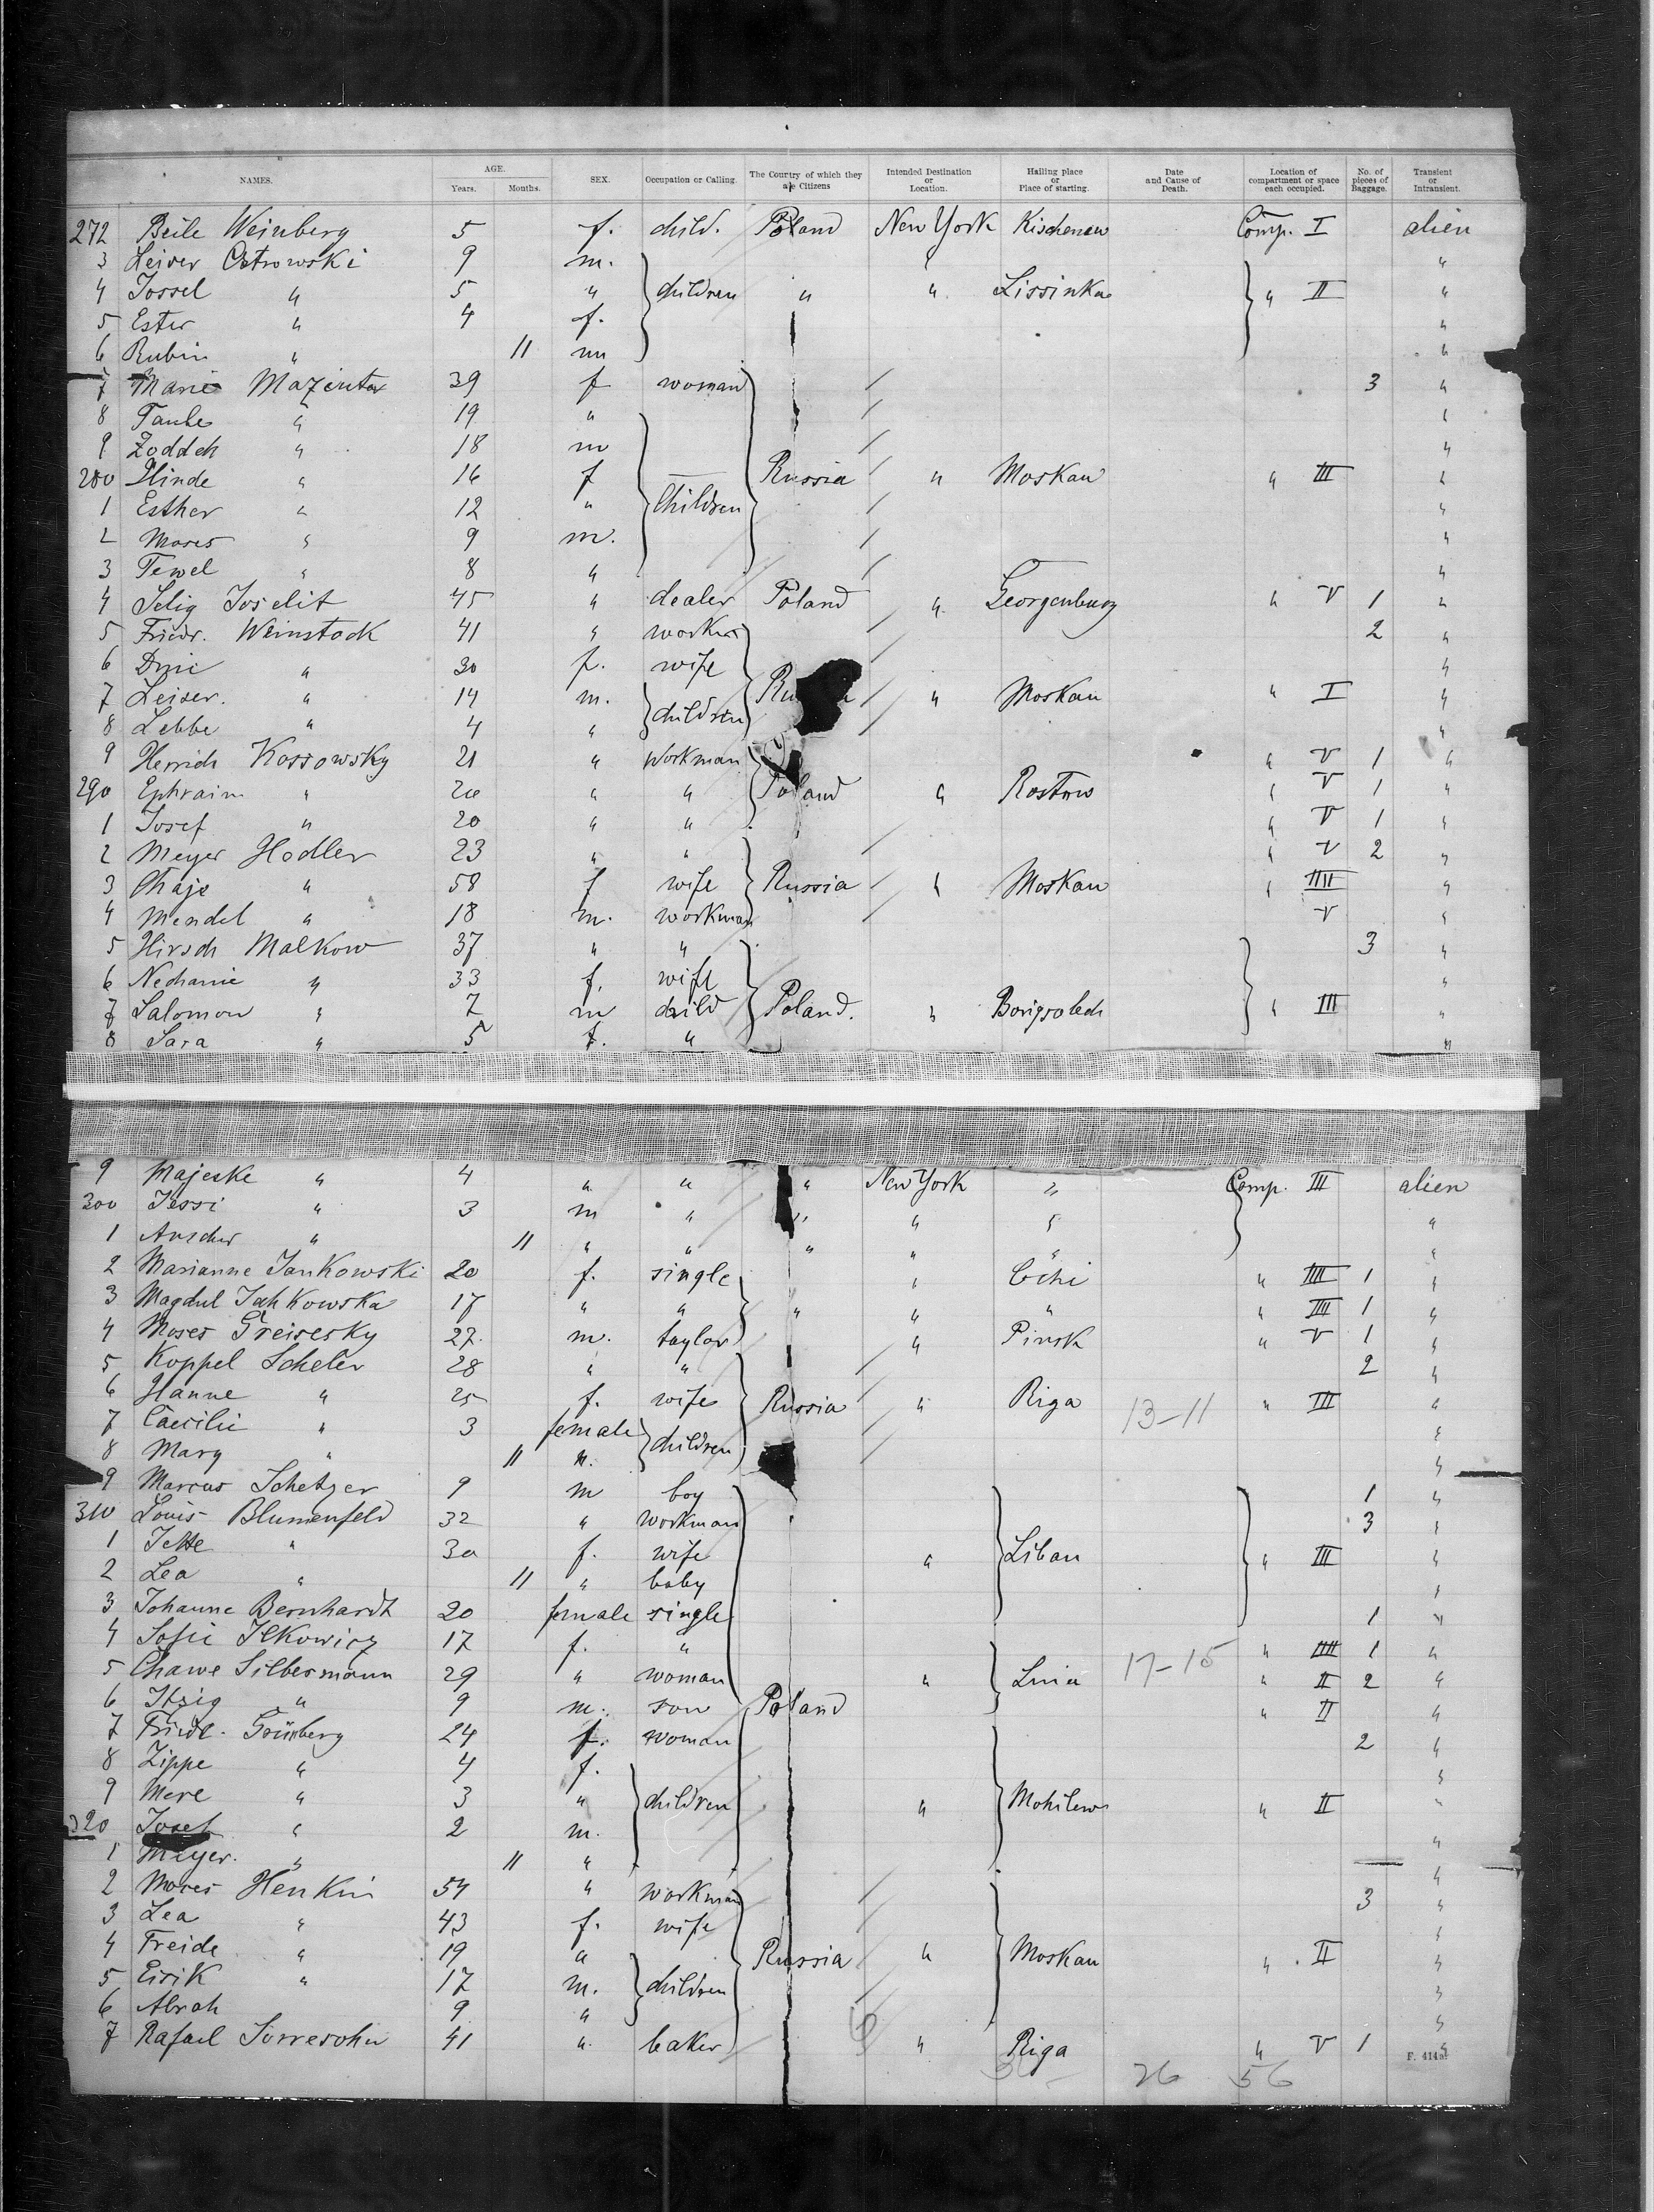 NAMES. AGE. Years. Months. SEX. Occupation or Calling. The Country of which they are Citizens Intended Destination or Location. Hailing place or Place of starting. Date and Cause of Death. Location of compartment or space each occupied. No. of pieces of Baggage. Transient or Intransient.
272 Beile Weinberg 5 f. child. Poland New York Kischenew Comp. I alien
3 Leiser Ostrowski 9 m. "
4 Jossel " 5 " children " " Lissinka " II "
5 Ester " 4 f. "
6 Rubin " 11 m "
7 Marie Mazinter 39 f woman 3 "
8 Taube " 19 " "
9 Zoddek " 18 m "
280 Hinde " 16 f Children Russia " Moskau " III "
1 Esther " 12 " "
2 Moses " 9 m. "
3 Tewel " 8 " "
4 Selig Joselit 45 " dealer Poland " Georgenburg " V 1 "
5 Friedr. Weinstock 41 " worker 2 "
6 " 30 f. wife "
7 Leiser. " 14 m. children " Moskau " I "
8 Lebbe " 4 " "
9 Henrich Kossowsky 21 " workman " V 1 "
290 Ephraim " 20 " " Poland " Rostow " V 1 "
1 Josef " 20 " " " V 1 "
2 Meyer Hodler 23 " " " V 2 "
3 Chaje " 58 f wife Russia " Moskau " IIII "
4 Mendel " 18 m. workman V "
5 Hirsch Malkow 37 " " 3 "
6 Nechame " 33 f. wife "
7 Salomon " 7 m child Poland. " " III "
8 Sara " 5 f. " "
9 Majeske " 4 " " " New York " Comp. III alien
300 Jessi " 3 m " " " " "
1 Anscher " 11 " " " " " "
2 Marianne Jankowski 20 f. single " " IIII 1 "
3 Magdul Jahkowska 17 " " " " " " IIII 1 "
4 Moses Greisesky 27. m. taylor " Pinsk " V 1 "
5 Koppel Scheler 28 " " 2 "
6 Hanne " 25 f. wife Russia " Riga 13-11 " III "
7 Caecilie " 3 female children "
8 Mary " 11 "
9 Marcus Schetzer 9 m boy 1 "
310 Louis Blumenfeld 32 " workman 3 "
1 Jette " 30 f. wife " Libau " III "
2 Lea " 11 " baby "
3 Johanne Bernhardt 20 female single 1 "
4 Sofie Ilkowicz 17 f. " " IIII 1 "
5 Chawe Silbermann 29 " woman " 17-15 " II 2 "
6 Itzig " 9 m. son Poland " II "
7 Friedr. Grünberg 24 f. woman 2 "
8 Zippe " 4 f. "
9 Mere " 3 " children " Mohilew " II "
320 Josef " 2 m. "
1 Meyer. " 11 " "
2 Moses Henkin 54 " workman 3 "
3 Lea " 43 f. wife "
4 Freide " 19 " Russia " Moskau " II "
5 Eisik " 17 m. children "
6 Abrah 9 " "
7 Rafael Sorresohn 41 " baker " Riga " V 1 "
F. 414a.
26 56